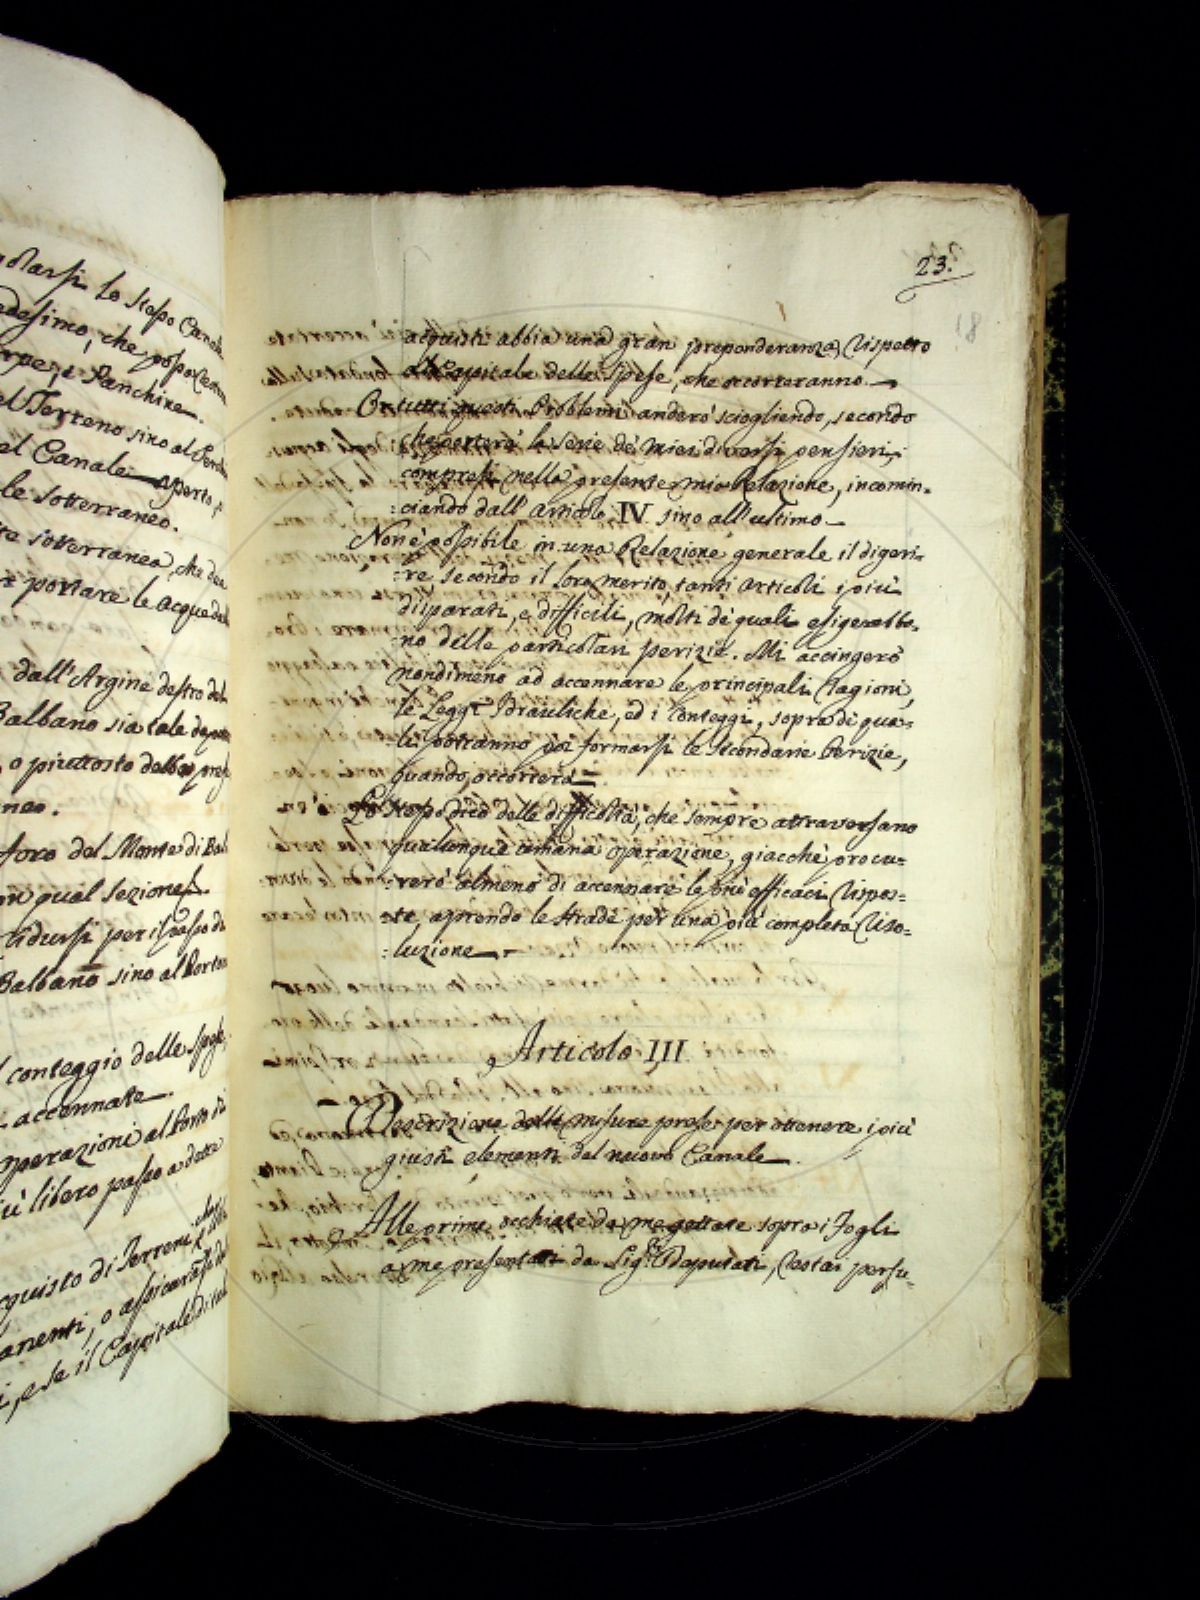 olarsi lo stesso Canale
edesimo, che possa
Panchine.
el Terreno sino al
el Canale aperto,
le sotterraneo.
te sotterranea, che dee
portare le acque dal
dall'Argine destro del
Balbano sia tale da
o piuttosto dalla
neo.
foro del Monte di Bal
qual sezione.
ridursi per il passo di
Balbano sino al Porto
conteggio delle spese,
accennate.
operazioni al Porto di
libero passo a dette
cquisto di Terreni che
anenti, o assicurarsi dal
i, e se il Capitale di tal
23.
18
acquisti abbia una gran preponderanza rispetto
al Capitale delle spese, che occorreranno.
Or tutti questi Problemi anderò sciogliendo, secondo
che porterà la serie de' miei diversi pensieri,
compresi nella presente mia Relazione, incomin=
:ciando dall'articolo IV. sino all'ultimo.
Non è possibile in una Relazione generale il digeri=
:re secondo il loro merito tanti articoli i più
disparati, e difficili, molti de' quali esigerebbe=
:no delle particolari perizie. Mi accingerò
nondimeno ad accennare le principali ragioni,
le Leggi Idrauliche, ed i Conteggi, sopra di qua=
:li potranno poi formarsi le secondarie Perizie,
quando occorrerà.
Lo stesso dico delle difficoltà, che sempre attraversano
qualunque umana operazione, giacchè procu=
:rerò almeno di accennare le più efficaci rispos=
:te aprendo le strade per una più completa riso=
:luzione.
Articolo III.
Descrizione delle misure prese per ottenere i più
giusti elementi del nuovo Canale.
Alle prime occhiate da me gettate sopra i Fogli
a me presentati da Sig.ri Deputati, restai persu=